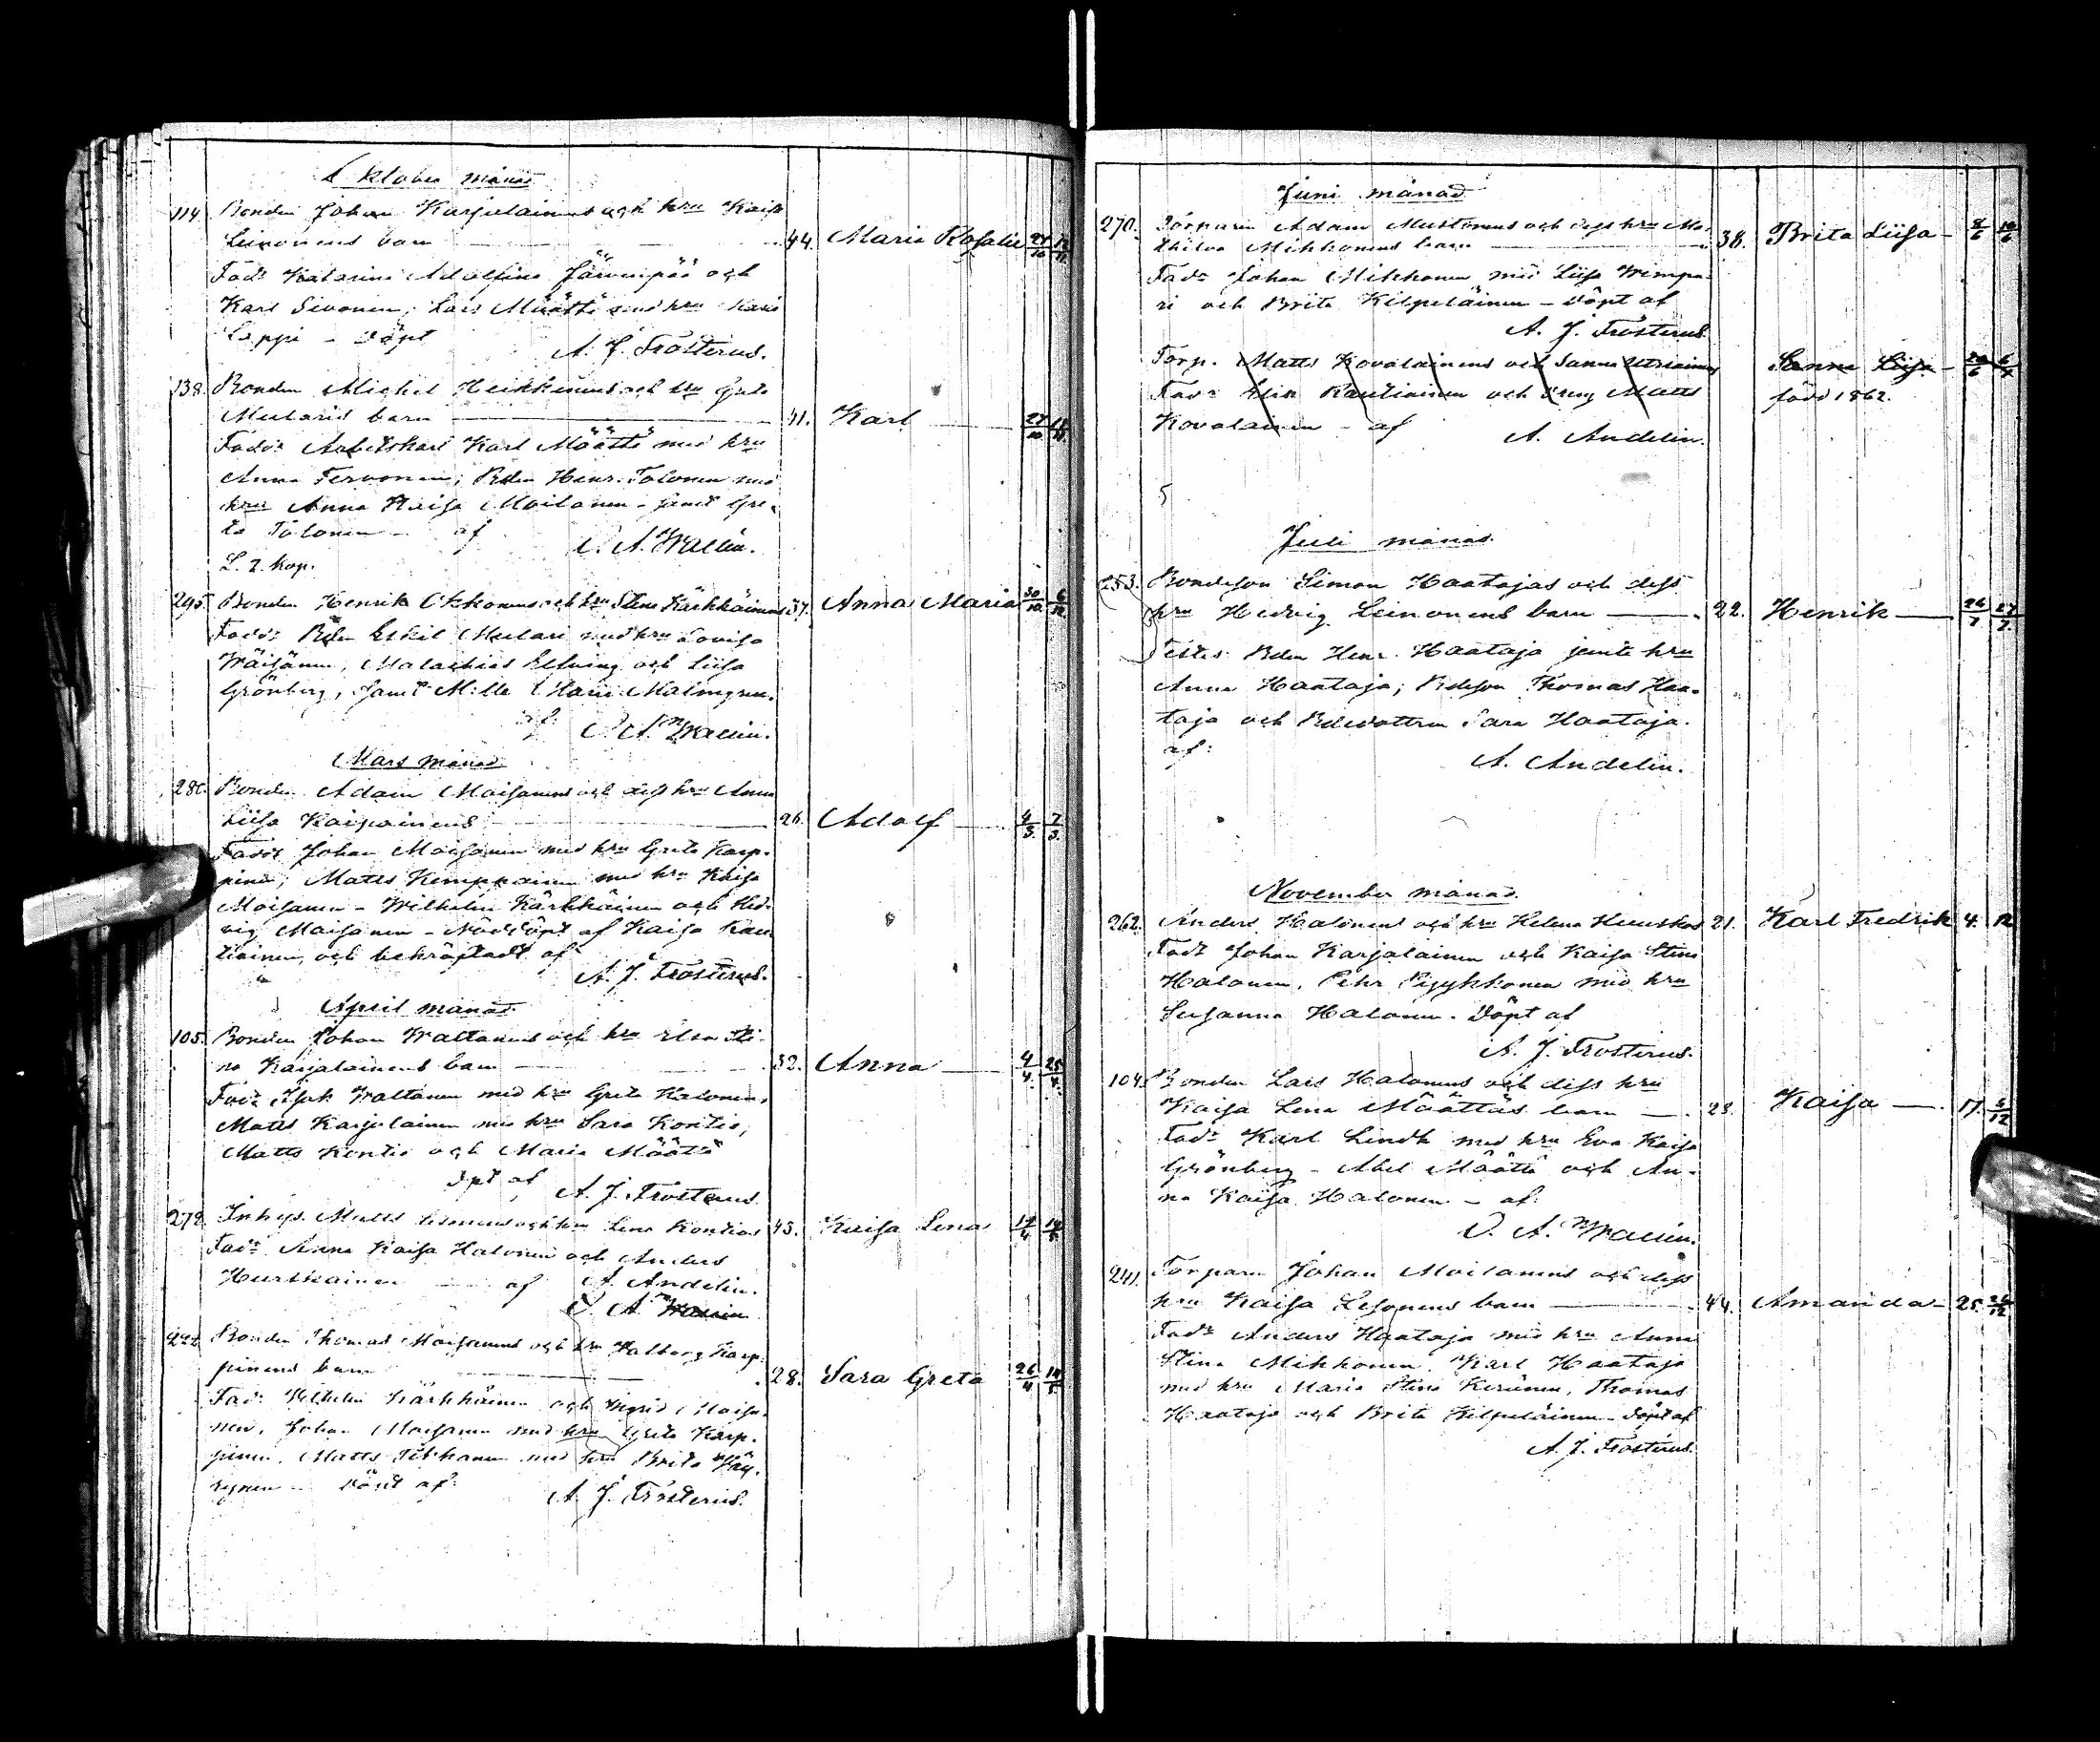 Oktober månad
114. Bonden Johan Karjalainens och hru Kaisa
Leinonens barn 44. Maria Rosalie 27/10 12/11
Fadr Katarina Adolfina Järvenpää och
Karl Sivonen; Lars Määttä med hru Maria
Leppi - döpt A. J. Frosterus.
138. Bonden Michel Heikkinens och hru Greta
Mularis barn 41. Karl 27/10
Fadr Arbetskarl Karl Määttä med hru
Anna Tervonen; Bden Henr. Tolonen med
hru Anna Kaisa Moilanen - samt Gre-
ta Tolonen - af O. A. Wallin.
L. 2. kop.
295. Bonden Henrik Okkonens och hru Stina Kärkkäinens 37. Anna Maria 30/10 6/12
Fadr Bden Eskil Mulari med hru Lovisa
Wäisänen, Malachias Elfving och Liisa
Grönberg, samt M:lle Marie Malmgren.
af: O. A. Wallin.
Mars månad
280. Bonden Adam Moisanens och dess hru Anna
Liisa Kaipainens 26. Adolf 4/3 7/3
Fadr Johan Moisanen med hru Greta Karp-
pinen; Matts Kemppainen med hru Kaisa
Moisanen - Wilhelm Kärkkäinen och Hed-
vig Moisanen - Nöddöpt af Kaisa Kau-
tiainen, och bekräftadt af
A. J. Frosterus.
April månad
105. Bonden Johan Waltanens och hru Elsa Sti-
na Karjalainens barn 32. Anna 4/4 25/4
Fadr Isak Waltanen med hru Greta Halonen,
Matts Karjalainen med hru Sara Kontio,
Matts Kontio och Maria Määttä
dpt af A. J. Frosterus.
272. Inhys. Matts och hru Lena Kontios 43. Kaisa Lena 17/4 14/5
Fadr Anna Kaisa Halonen och Anders
Hurskainen af A. Andelin.
O. A. Wallin
222. Bonden Thomas Moisanens och hru Valborg Karp-
pinens barn 28. Sara Greta 26/4 14/5
Fadr Wilhelm Kärkkäinen och Sigrid Moisa-
nen, Johan Moisanen med hru Greta Karp-
pinen, Matts Tikkanen med hru Brita Väy-
rynen - Döpt af: A. J. Frosterus.
Juni månad
270. Torparen Adam Mustonens och dess hru Ma-
thilda Mikkonens barn 38. Brita Liisa 8/6 10/6
Fadr Johan Mikkonen med Liisa Wimpa-
ri och Brita Kilpeläinen - döpt af
A. J. Frosterus.
Torp. Matts Kovalainens och Sanna Utriainens Sanna Liisa
Fadr Elin Rautiainen och dräng Matts född 1862.
Kovalainen - af A. Andelin.
Juli månad.
253. Bondeson Simon Haatajas och dess
hru Hedvig Leinonens barn 22. Henrik 26/7 27/7
Testes: Bden Henr. Haataja jemte hru
Anna Haataja; Bdeson Thomas Haa-
taja och Bdedottren Sara Haataja.
af: A. Andelin.
November månad.
262. Anders Halonens och hru Helena Huuskos 21. Karl Fredrik 4. 12
Fadr Johan Karjalainen och Kaisa Stina
Halonen, Pehr Pyykkonen med hru
Susanna Halonen. Döpt af
A. J. Frosterus.
104. Bonden Lars Halonens och dess hru
Kaisa Lena Määttäs barn 28. Kaisa 17. 5/12
Fadr Karl Lindh med hru Eva Kaisa
Grönberg - Abel Määttä och An-
na Kaisa Halonen - af:
O. A. Wallin.
241. Torparn Johan Moilanens och dess
hru Kaisa Lesonens barn 44. Amanda 25. 26/12
Fadr Anders Haataja med hru Anna
Stina Mikkonen. Karl Haataja
med hru Maria Stina Keränen, Thomas
Haataja och Brita Kilpeläinen - döpt af
A. J. Frosterus.